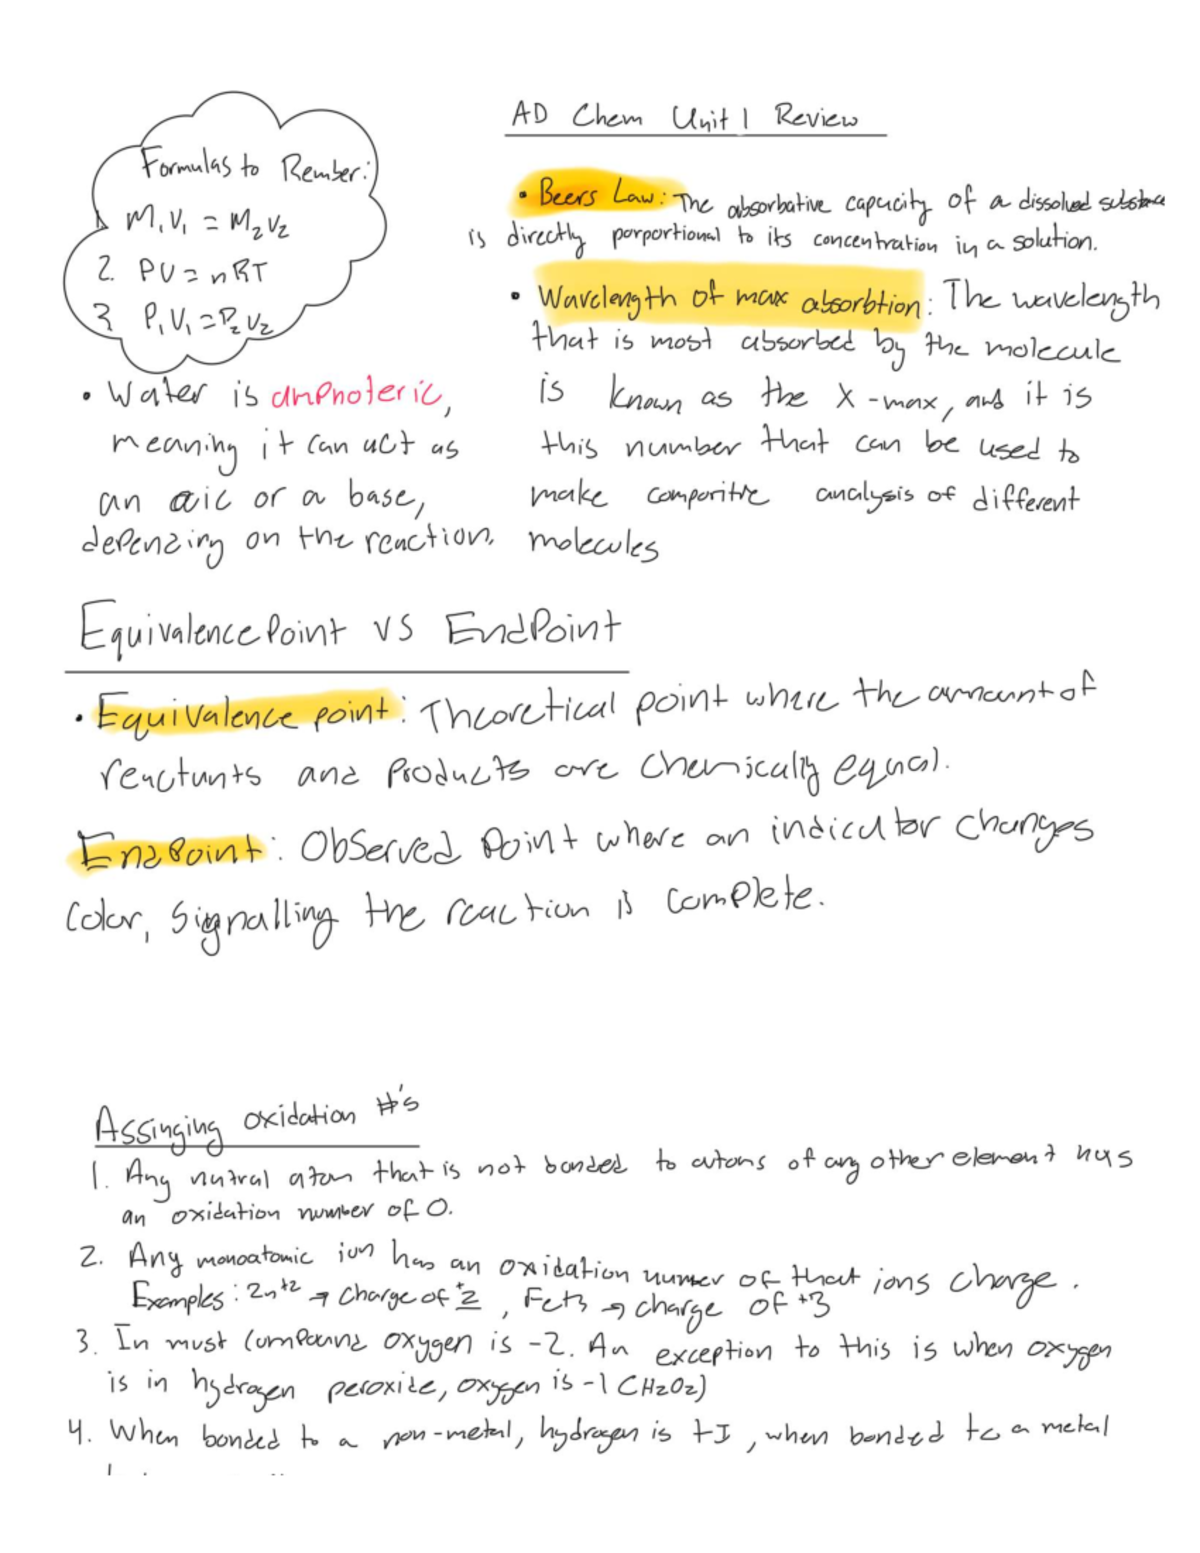 AD Chem Unit 1 Review
Formulas to Rember:
1. M₁V₁ = M₂V₂
2. PV = nRT
3. P₁V₁ = P₂V₂
• Water is amphoteric,
meaning it can act as
an aic or a base,
depending on the reaction.
• Beers Law: The absorbative capacity of a dissolved substance
is directly porportional to its concentration in a solution.
• Wavelength of max absorbtion: The wavelength
that is most absorbed by the molecule
is known as the X-max, and it is
this number that can be used to
make comparitive analysis of different
molecules
Equivalence Point vs EndPoint
• Equivalence point: Theoretical point where the amount of
reactants and products are chemically equal.
EndPoint: Observed Point where an indicator changes
color, signalling the reaction is complete.
Assinging oxidation #'s
1. Any nutral atom that is not bonded to atoms of any other element has
an oxidation number of 0.
2. Any monoatomic ion has an oxidation numer of that ions charge.
Examples: Zn+2 → charge of +2, Fe+3 → charge of +3
3. In most compound oxygen is -2. An exception to this is when oxygen
is in hydrogen peroxide, oxygen is -1 (H2O2)
4. When bonded to a non-metal, hydrogen is +I, when bonded to a metal